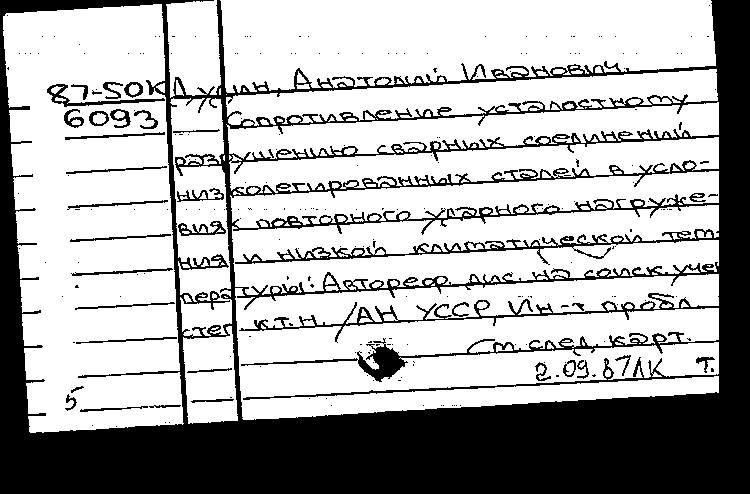 87-50К Анатолий Иванович.
6093 Сопротивление усталостному
разрушению сварных соединений
низколегированных сталей в усло-
виях повторного ударного нагруже-
ния и низкой климатической тем-
пературы: Автореф. дис. на соиск. учен
степ. к.т.н. /АН УССР, Ин-т пробл.
См. след. карт.
2.09.87ЛК Т.
5